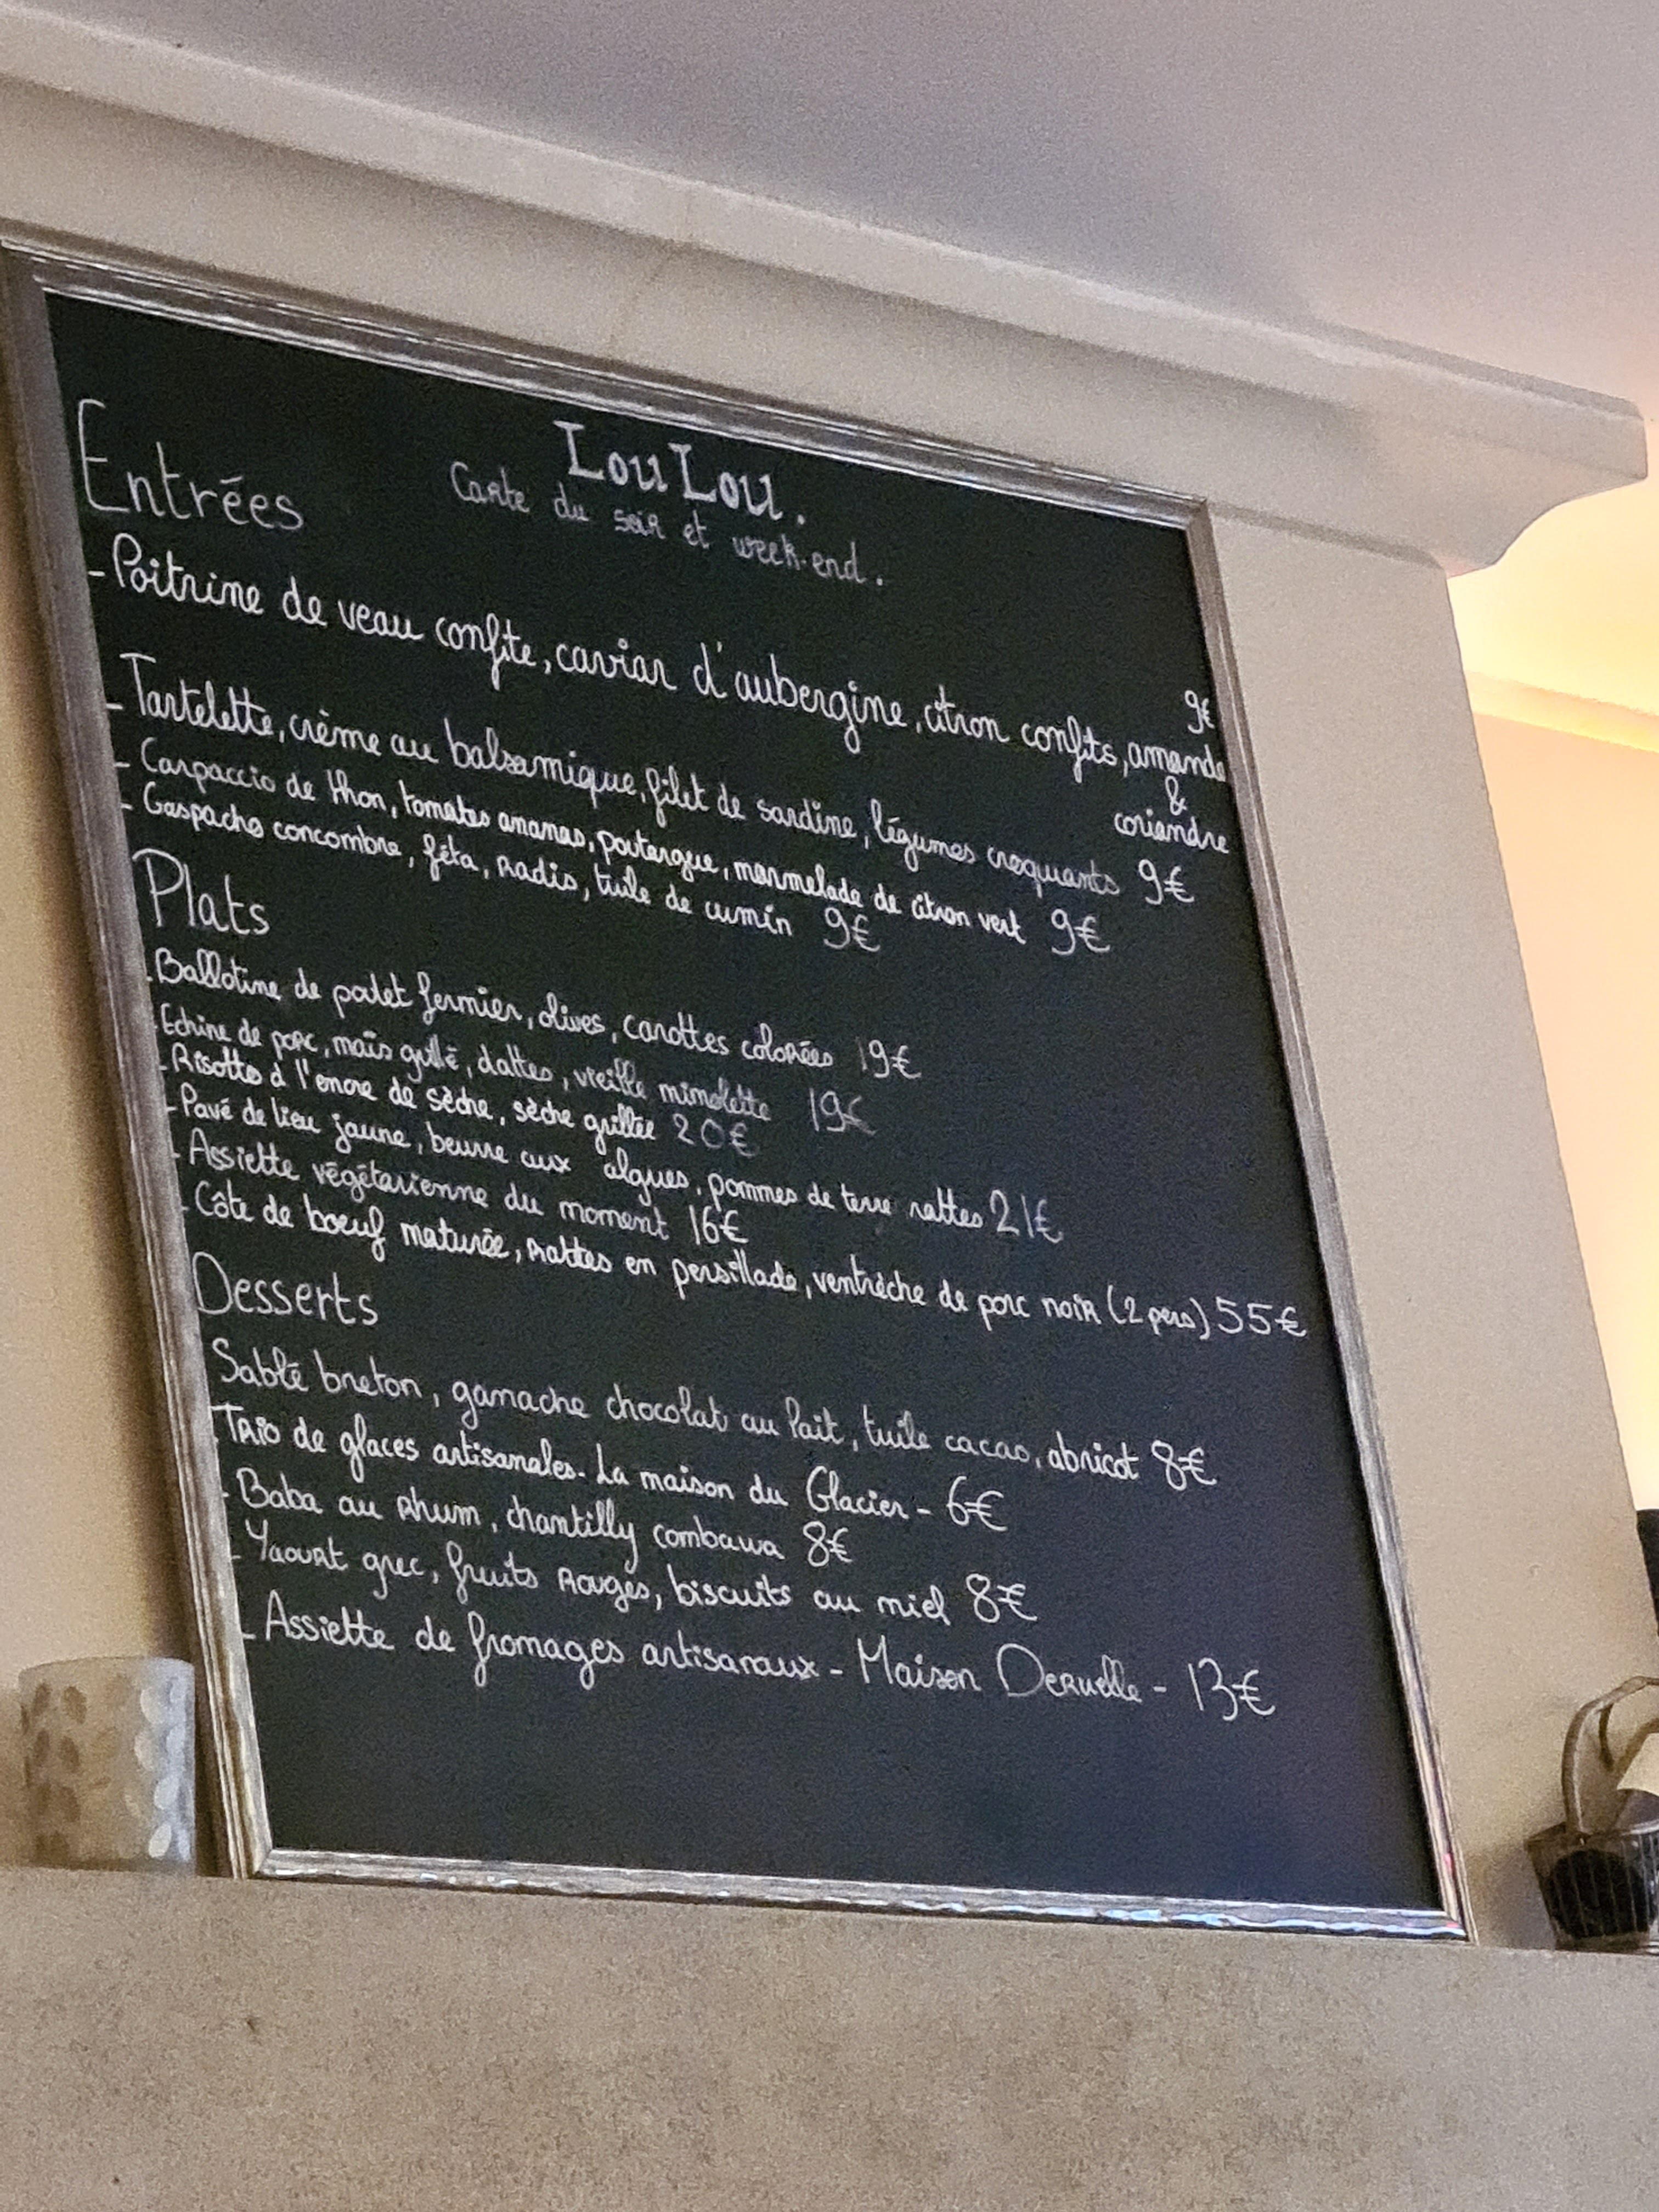 LouLou.
Carte du soir et week-end.
Entrées
- Poitrine de veau confite, caviar d'aubergine, citron confits, amande 9€
& coriandre
- Tartelette, crème au balsamique, filet de sardine, légumes croquants 9€
- Carpaccio de thon, tomates ananas, poutargue, marmelade de citron vert 9€
- Gaspacho concombre, fêta, radis, tuile de cumin 9€
Plats
- Ballotine de poulet fermier, olives, carottes colorées 19€
- Echine de porc, maïs grillé, dattes, vieille mimolette 19€
- Risotto à l'encre de sèche, sèche grillée 20€
- Pavé de lieu jaune, beurre aux algues, pommes de terre rattes 21€
- Assiette végétarienne du moment 16€
- Côte de boeuf maturée, rattes en persillade, ventrèche de porc noir (2 pers) 55€
Desserts
Sablé breton, ganache chocolat au lait, tuile cacao, abricot 8€
- Trio de glaces artisanales - La maison du Glacier - 6€
- Baba au rhum, chantilly combawa 8€
- Yaourt grec, fruits rouges, biscuits au miel 8€
- Assiette de fromages artisanaux - Maison Deruelle - 13€